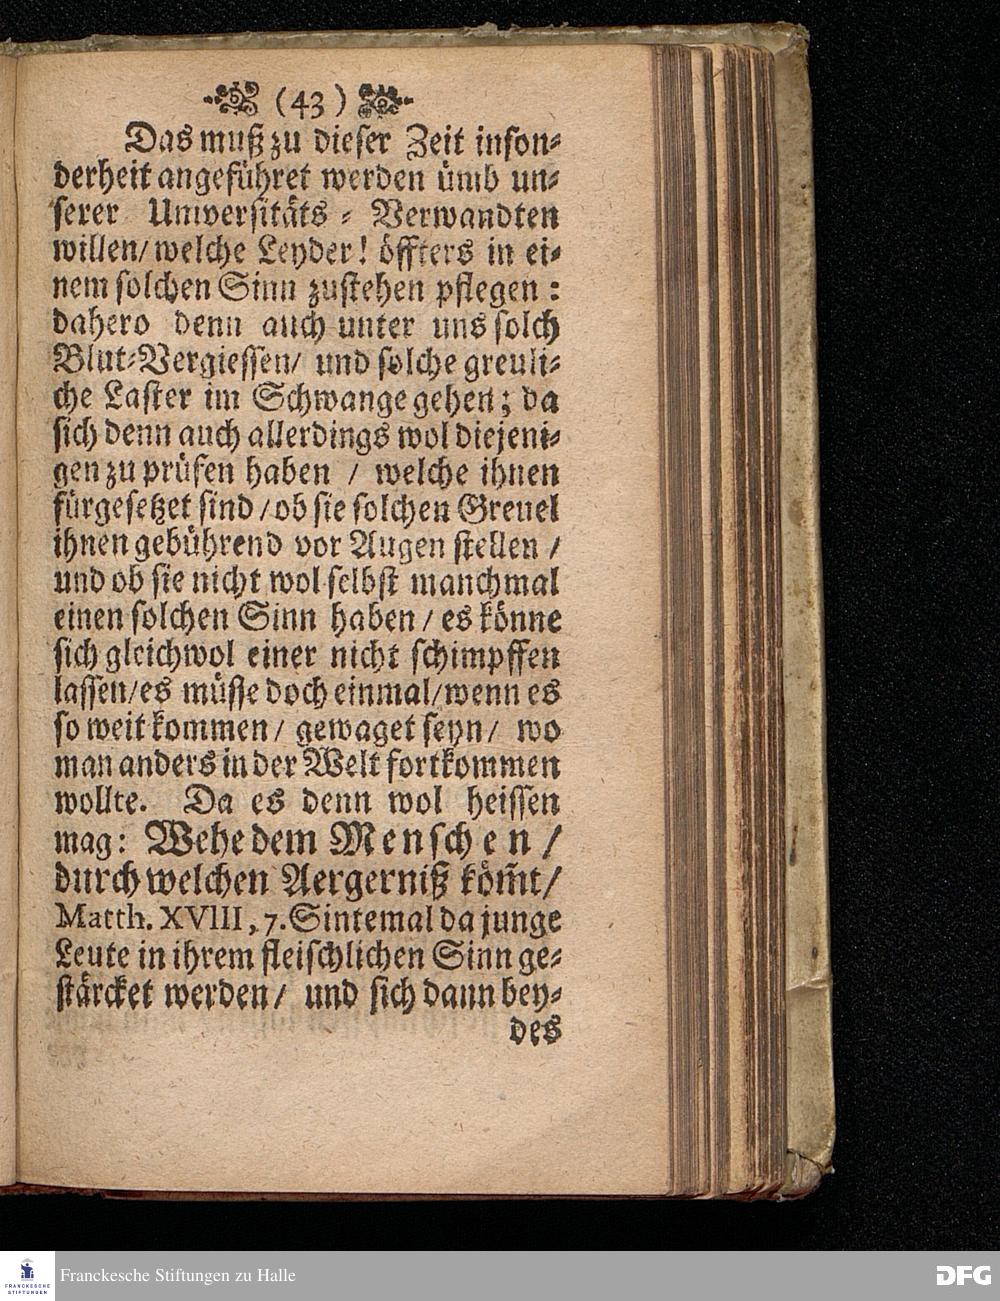 (43)
Das muß zu dieser Zeit inson-
derheit angeführet werden ümb un-
serer Universitäts - Verwandten
willen/ welche Leyder! öffters in ei-
nem solchen Sinn zustehen pflegen:
dahero denn auch unter uns solch
Blut-Vergiessen/ und solche greuli-
che Laster im Schwange gehen; da
sich denn auch allerdings wol diejeni-
gen zu prüfen haben / welche ihnen
fürgesetzet sind / ob sie solchen Greuel
ihnen gebührend vor Augen stellen /
und ob sie nicht wol selbst manchmal
einen solchen Sinn haben / es könne
sich gleichwol einer nicht schimpffen
lassen/ es müsse doch einmal/ wenn es
so weit kommen/ gewaget seyn/ wo
man anders in der Welt fortkommen
wollte. Da es denn wol heissen
mag: Wehe dem Menschen/
durch welchen Aergerniß köm̃t/
Matth. XVIII, 7. Sintemal da junge
Leute in ihrem fleischlichen Sinn ge-
stärcket werden/ und sich dann bey-
des
FRANCKESCHE
STIFTUNGEN
Franckesche Stiftungen zu Halle
DFG